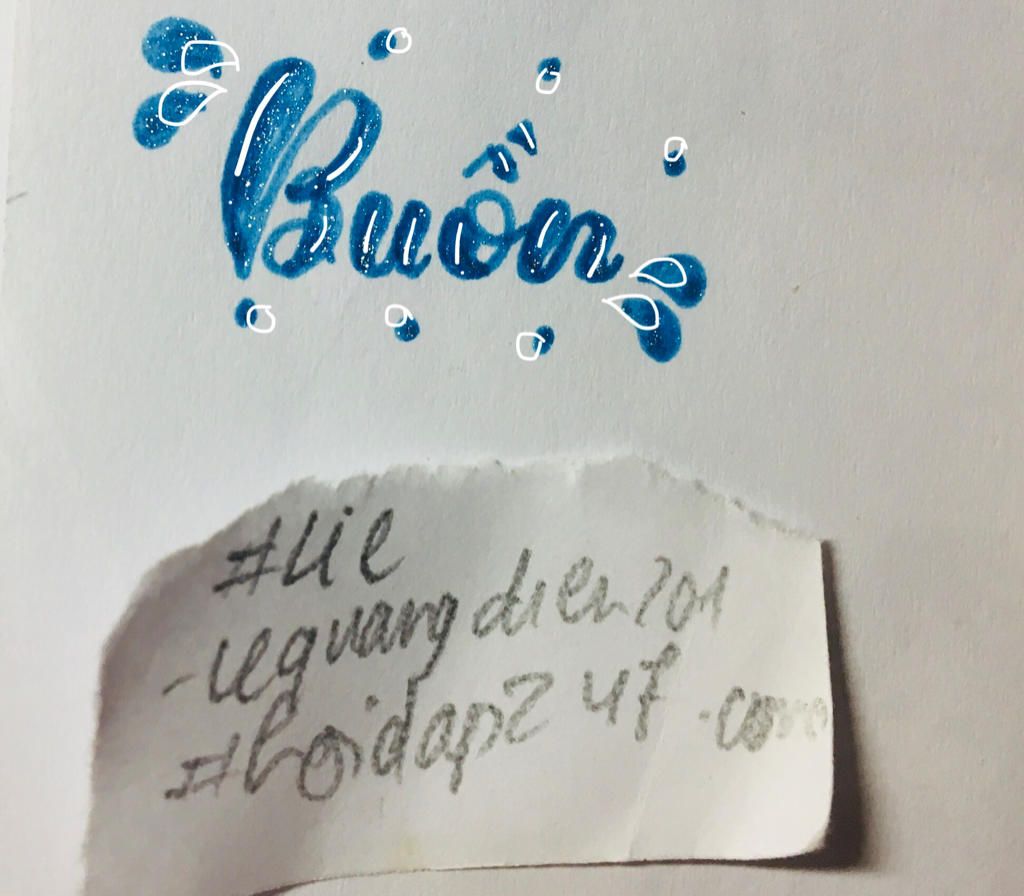 Buồn
#Lie
-lequangdien201
#hoidap247.com